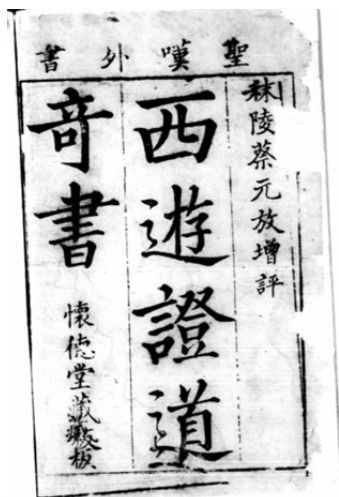 聖嘆外書
秣陵蔡元放增評
西遊證道
奇書
懷德堂藏板